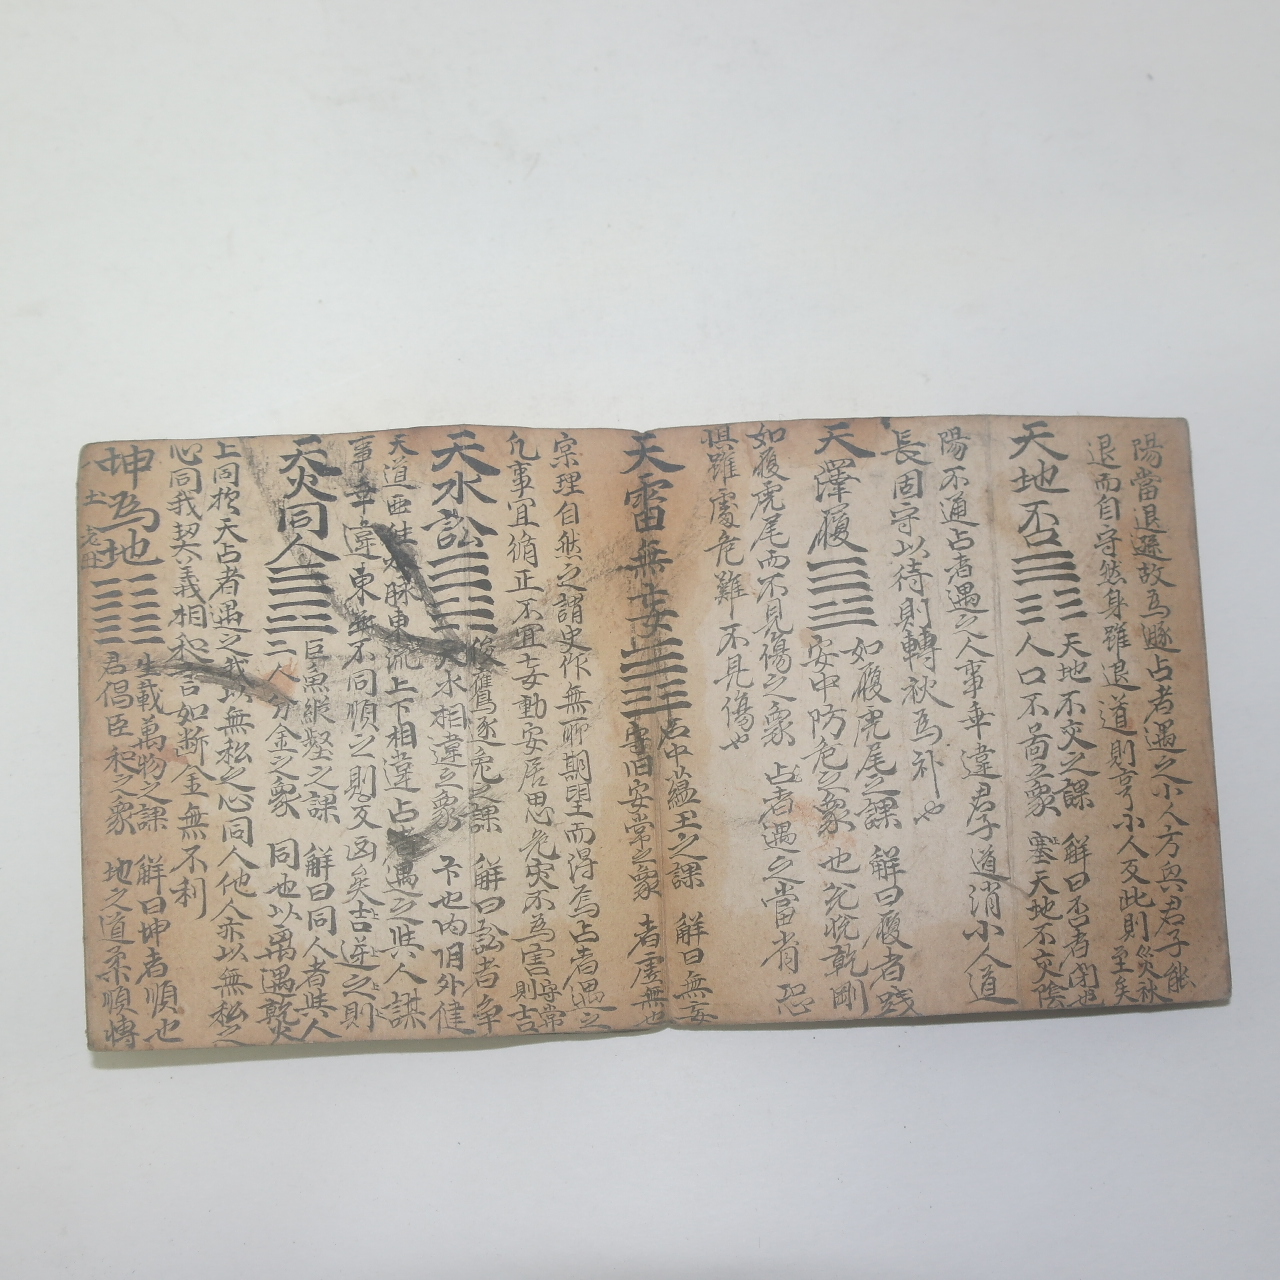 陽當退遯故為遯占者遇之小人方與君子能
退而自守然身雖退道則亨小人反此則災秋至矣
天地否 天地不交之課 人口不啚之象 解曰否者閉也 塞天地不交陰
陽不通占者遇之人事乖違君子道消小人道
長固守以待則轉秋為補也
天澤履 如履虎尾之課 安中防危之象 解曰履者踐 也兌悅乾剛
如履虎尾而不見傷之象 占者遇之當省恐
惧雖處危難不見傷也
天雷無妄 石中蘊玉之課 守旧安常之象 解曰無妄 者處無也
宗理自然之謂史作無所期望而得焉占者遇之
凡事宜循正不宜妄動安居思危突不為害守常則吉
天水訟 俊鷹逐兔之課 天水相違之象 解曰訟者爭 卞也內明外健
天道西 水脉東流上下相違占者遇之與人謀
事乖違東 不同順之則反凶矣吉逆之則
天火同人 巨魚縱壑之課 二人分金之象 解曰同人者與人 同也以离遇乾火
上同於天占者遇之我以無私之心同人他人亦以無私之
心同我契義相和 言如斷金無不利
坤為地 生載萬物之課 君倡臣和之象 解曰坤者順也 地之道柔順轉
八 土